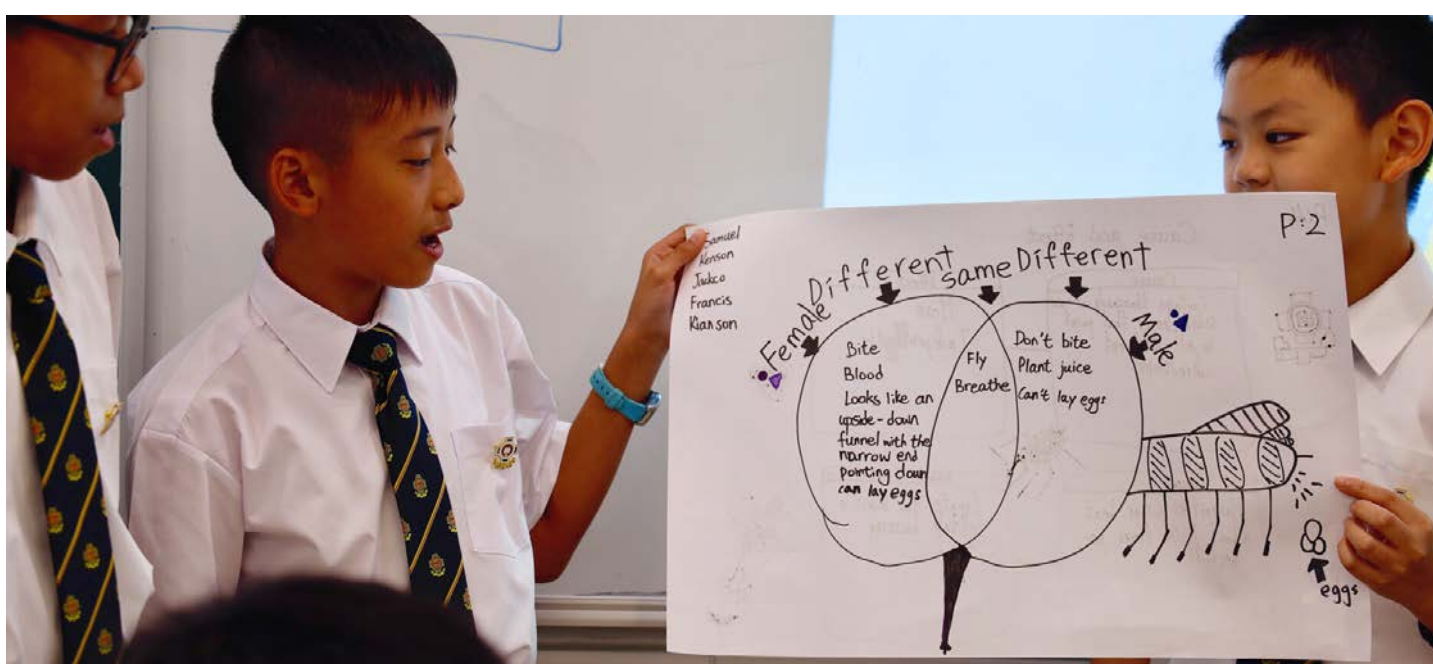 Samuel
Kenson
Jacko
Francis
Kianson
P:2
Different same Different
Female
Male
Bite
Blood
Looks like an
upside-down
funnel with the
narrow end
pointing down
can lay eggs
Fly
Breathe
Don't bite
Plant juice
Can't lay eggs
eggs